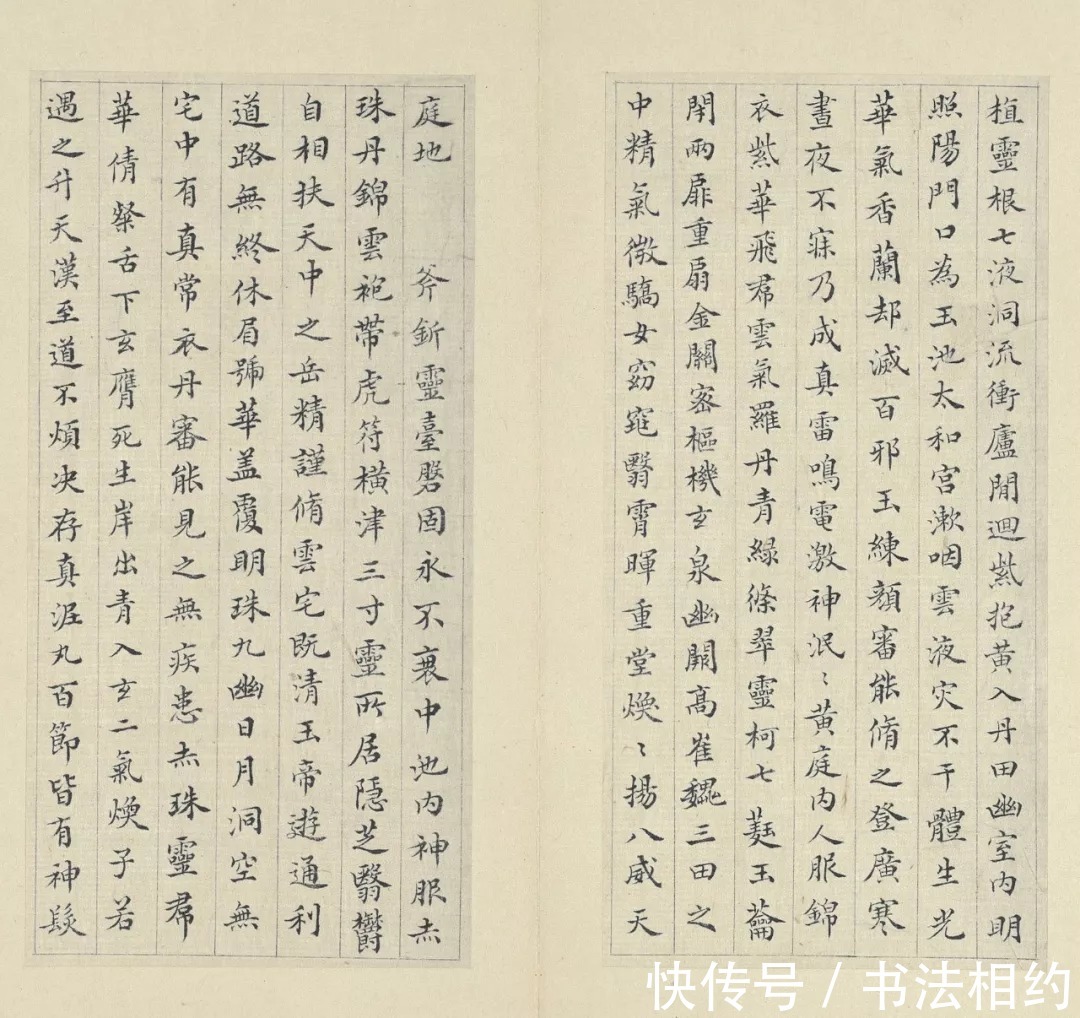 植靈根七液洞流衝廬間迴紫抱黃入丹田幽室內明
照陽門口為玉池太和宮漱咽雲液灾不干體生光
華氣香蘭却滅百邪玉練顏審能脩之登廣寒
晝夜不寐乃成真雷鳴電激神泯〻黃庭內人服錦
衣紫華飛裙雲氣羅丹青綠絛翠靈柯七蕤玉籥
閇兩扉重扇金關密樞機玄泉幽闕高崔巍三田之
中精氣微驕女窈窕翳霄暉重堂煥〻揚八威天
庭地斧釿靈臺磐固永不衰中池內神服赤
珠丹錦雲袍帶虎符橫津三寸靈所居隱芝翳欝
自相扶天中之岳精謹脩雲宅既清玉帝遊通利
道路無終休眉號華盖覆明珠九幽日月洞空無
宅中有真常衣丹審能見之無疾患赤珠靈裙
華倩粲舌下玄膺死生岸出青入玄二氣煥子若
遇之升天漢至道不煩决存真泥丸百節皆有神髮
快传号 / 书法相约